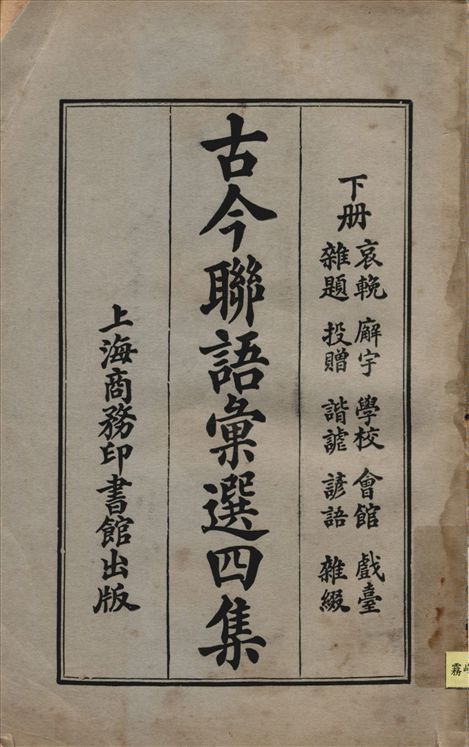 下册
哀輓 廨宇 學校 會館 戲臺
雜題 投贈 諧謔 諺語 雜綴
古今聯語彙選四集
上海商務印書館出版
霧峰